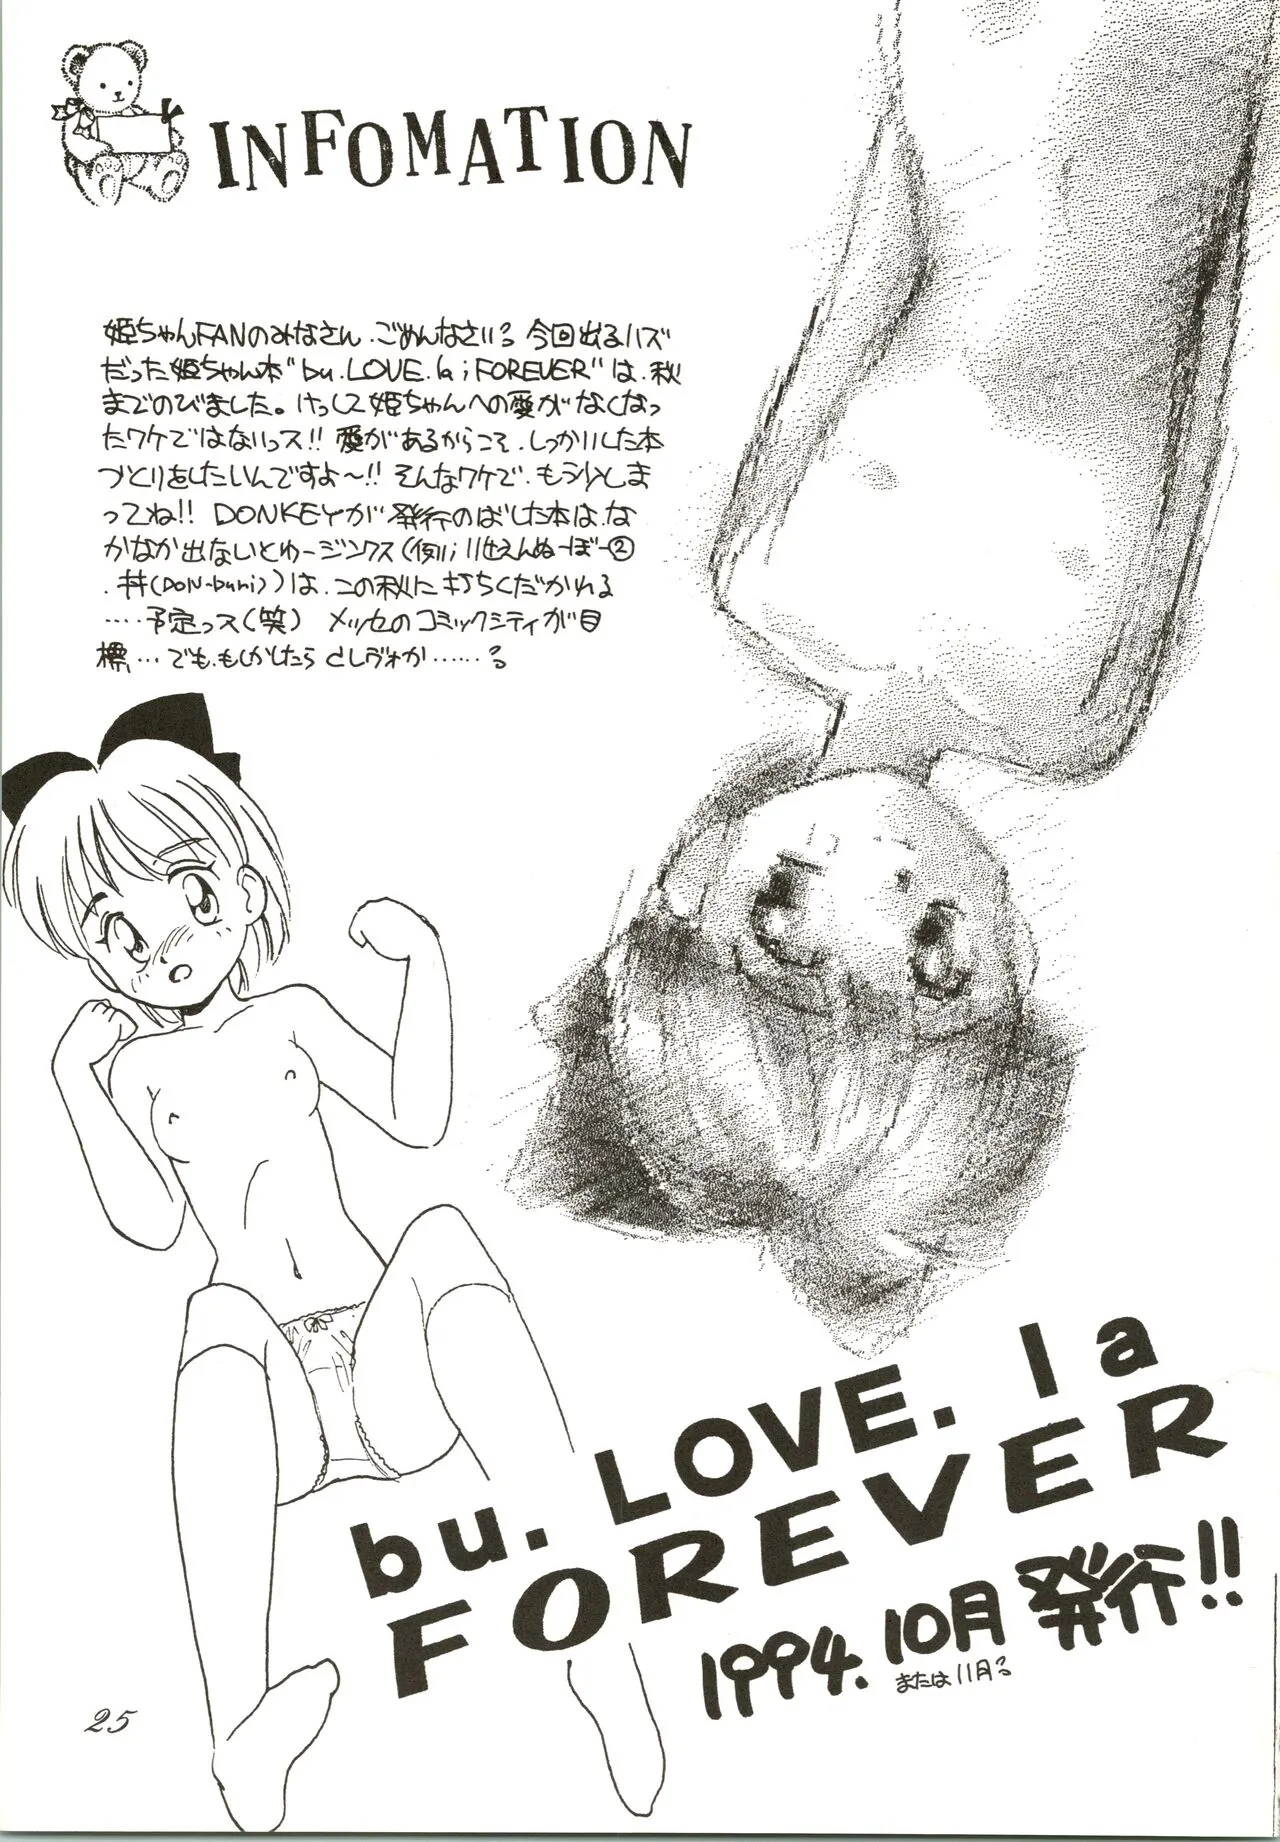 INFOMATION
姫ちゃんFANのみなさん、ごめんなさい。今回出るハズ
だった姫ちゃん本"bu.LOVE.la ; FOREVER"は、秋
までのびました。けっして姫ちゃんへの愛がなくなっ
たワケではないっス!! 愛があるからこそ、しっかりした本
づくりをしたいんですよ〜!! そんなワケで、もう少しま
ってね!! DONKEYが発行のばした本は、な
かなか出ないとゆージンクス(例;
丼(DON-buri))は、この秋に打ちくだかれる
‥‥予定っス(笑) メッセのコミックシティが目
標‥‥でも、もしかしたら
bu. LOVE. la
FOREVER
1994. 10月 発行!!
または11月
25